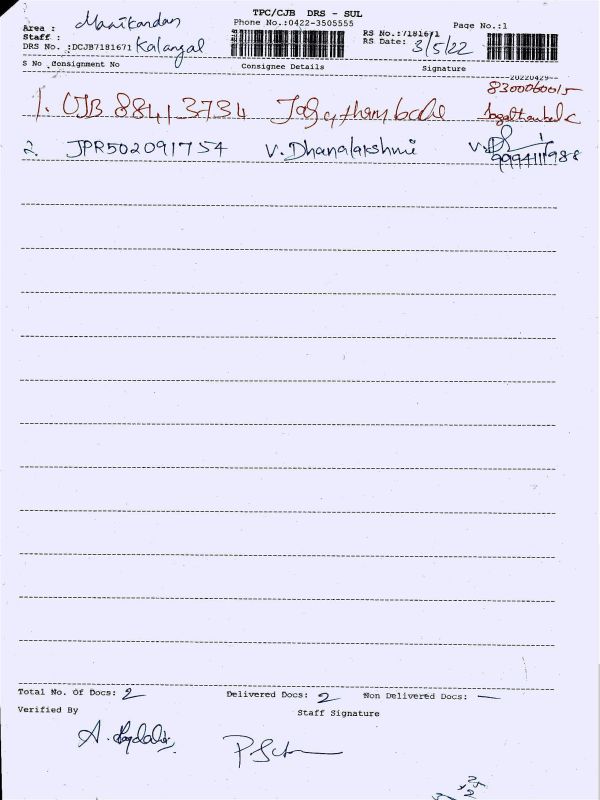 TPC/CJB DRS - SUL
Area : Manikandan Phone No.:0422-3505555 RS No.:7181671 Page No.:1
Staff : RS Date: 3/5/22
DRS No. :DCJB7181671 Kalangal
S No Consignment No Consignee Details Signature
20220429
8300060015
1. CJB 88413734
2. JPR502091754 V. Dhanalakshmi
9994111988
Total No. Of Docs: 2 Delivered Docs: 2 Non Delivered Docs: —
Verified By Staff Signature